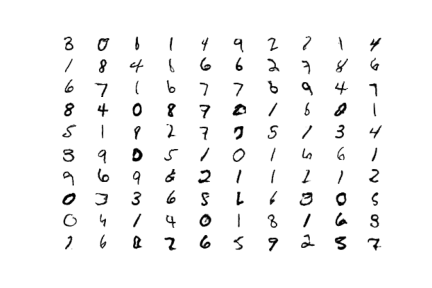 3 0 6 1 4 9 2 2 1 4
1 8 4 6 6 6 2 7 8 6
6 7 1 6 7 7 6 9 4 7
8 4 0 8 7 2 1 6 8 1
5 1 8 2 7 7 5 1 3 4
3 9 0 5 1 0 1 6 6 1
9 6 9 6 2 1 1 1 1 2
0 3 3 6 5 6 6 3 0 5
0 4 1 4 0 1 8 1 6 3
2 6 8 2 6 5 9 2 5 7